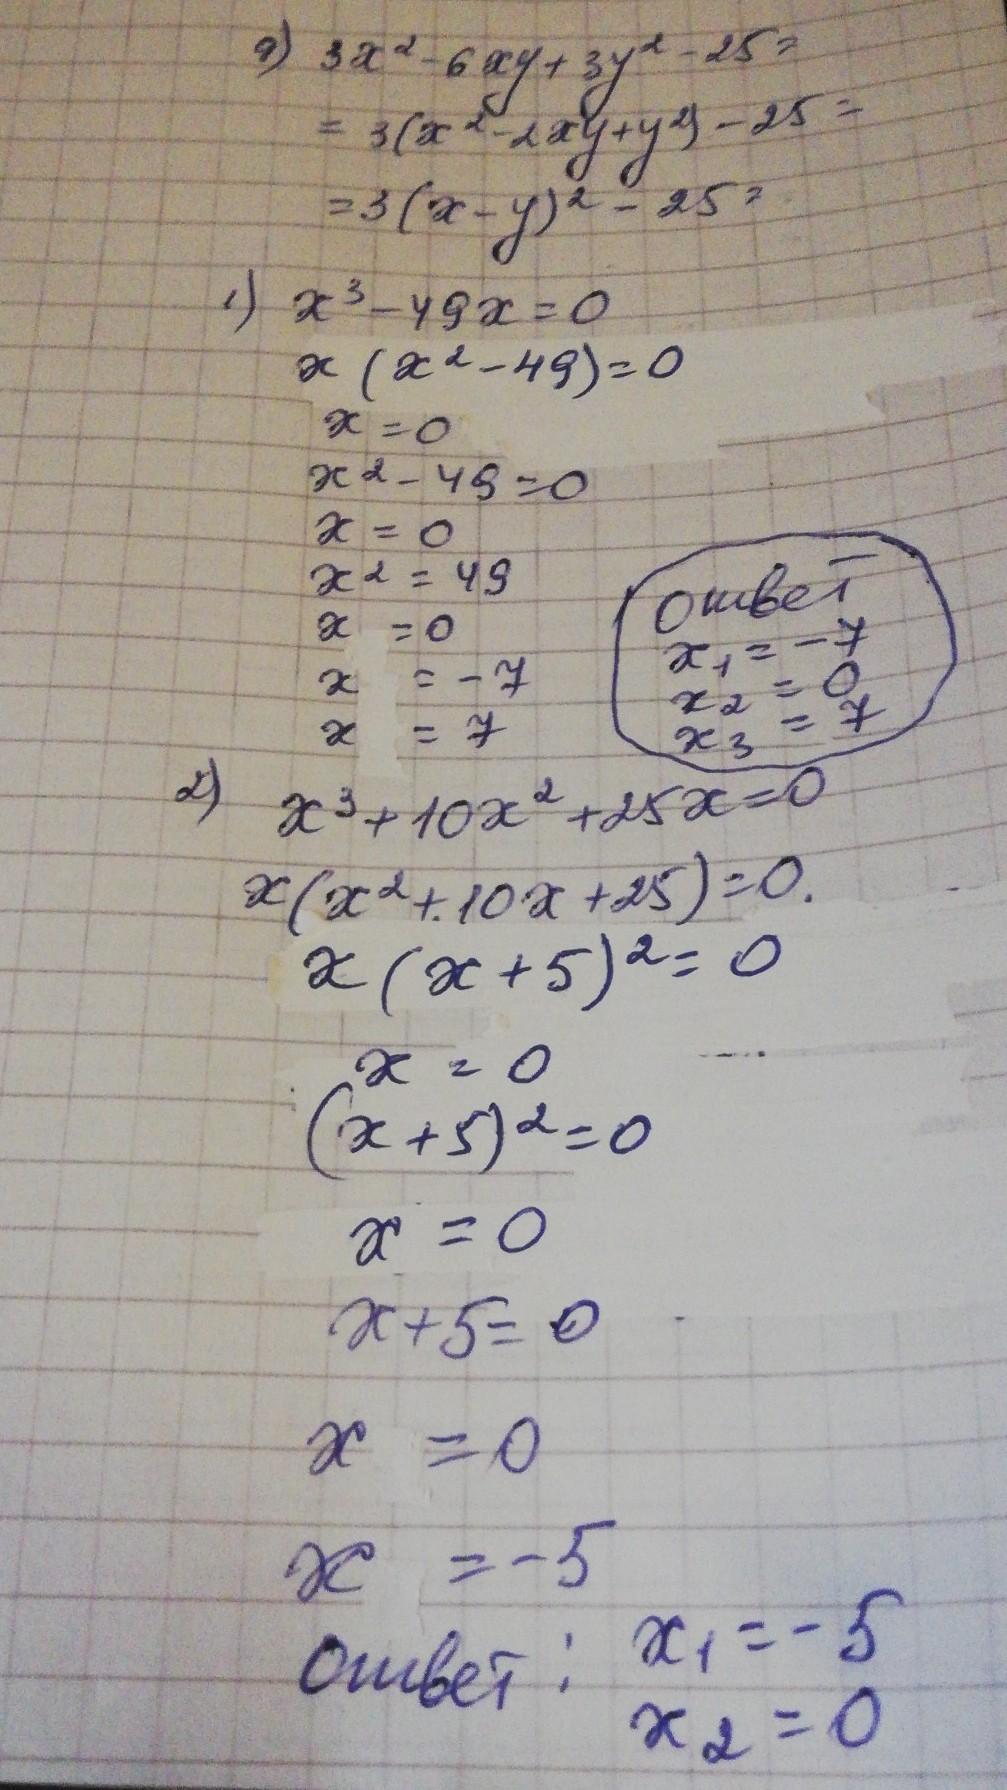 9) 3x² - 6xy + 3y² - 25 =
= 3(x² - 2xy + y²) - 25 =
= 3(x - y)² - 25 =
1) x³ - 49x = 0
x (x² - 49) = 0
x = 0
x² - 49 = 0
x = 0
x² = 49
x = 0
x = -7
x = 7
Ответ
x₁ = -7
x₂ = 0
x₃ = 7
2) x³ + 10x² + 25x = 0
x(x² + 10x + 25) = 0.
x (x + 5)² = 0
x = 0
(x + 5)² = 0
x = 0
x + 5 = 0
x = 0
x = -5
Ответ: x₁ = -5
x₂ = 0